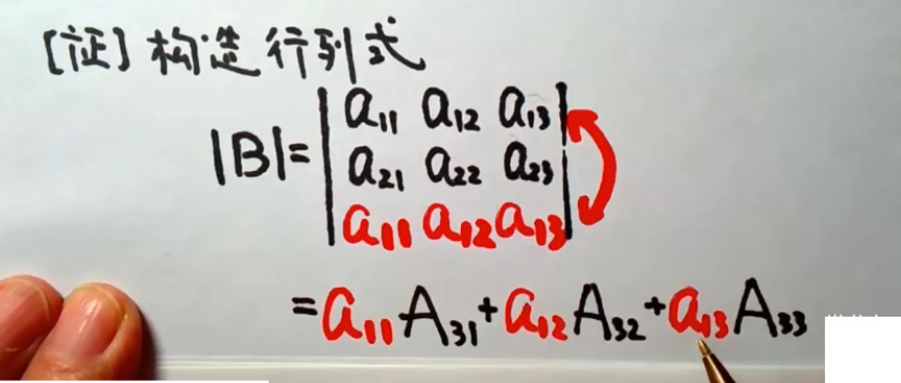 [证] 构造行列式
|B|= | a₁₁ a₁₂ a₁₃ |
| a₂₁ a₂₂ a₂₃ |
| a₁₁ a₁₂ a₁₃ |
= a₁₁A₃₁ + a₁₂A₃₂ + a₁₃A₃₃